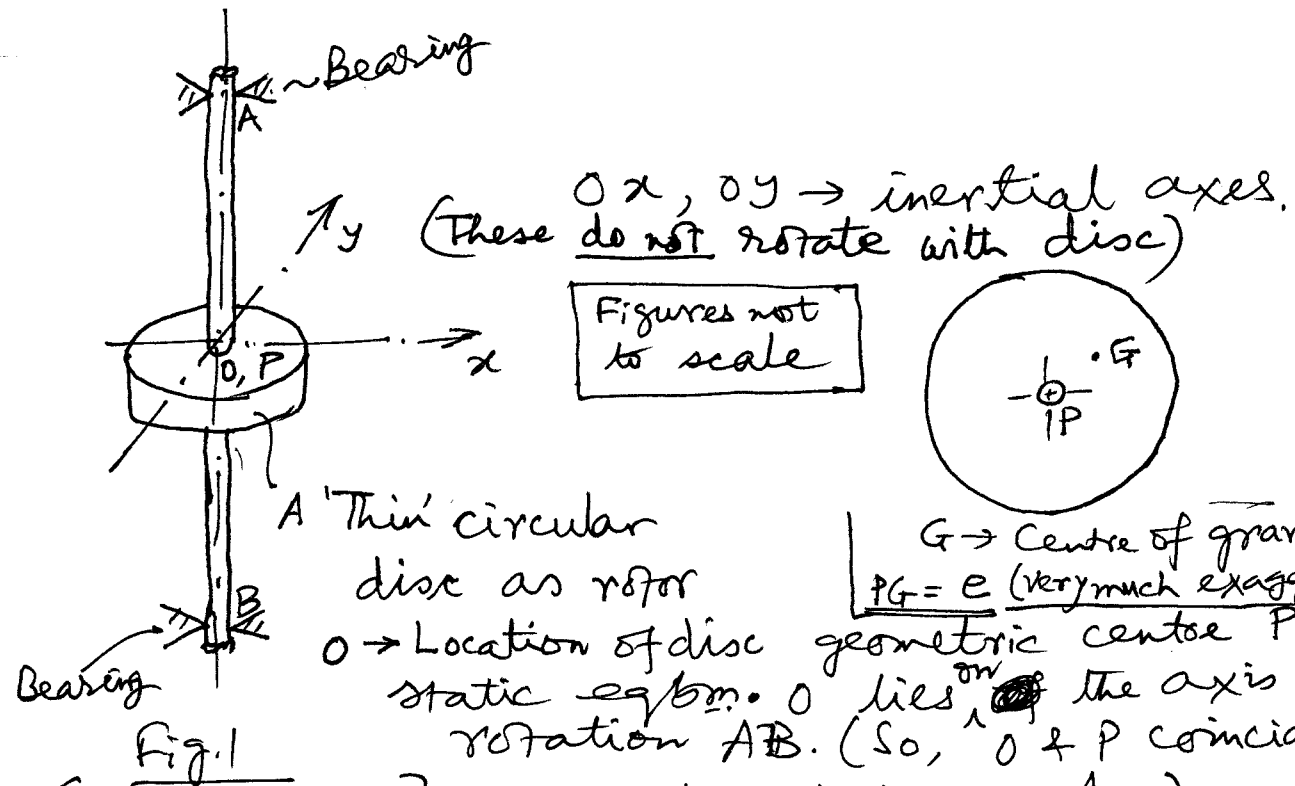 ~Bearing
A
Ox, Oy → inertial axes.
y (These do not rotate with disc)
Figures not
to scale
G
x
O, P
P
A 'Thin' circular
disc as rotor
G → Centre of
PG = e (very much
B
O → Location of disc geometric centre P
static eqbm. O lies on the axis
Bearing
rotation AB. (So, O & P
Fig.1